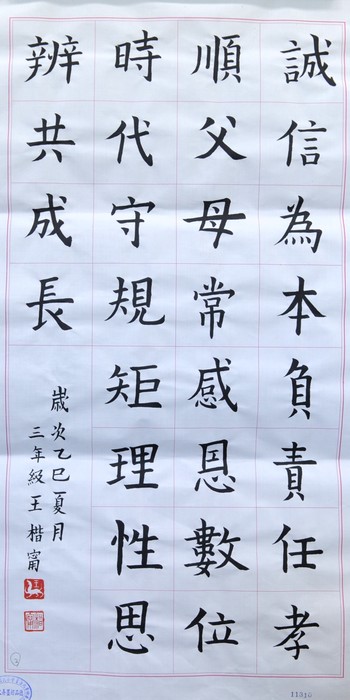 誠信為本負責任孝
順父母常感恩數位
時代守規矩理性思
辨共成長
歲次乙巳夏月
三年級王楷甯
11316